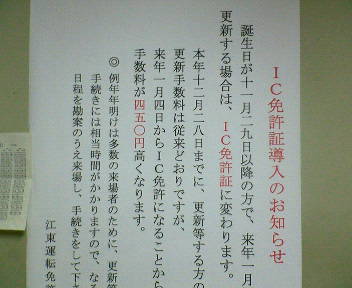 ＩＣ免許証導入のお知らせ
誕生日が十一月二九日以降の方で、来年一月
更新する場合は、ＩＣ免許証に変わります。
本年十二月二八日までに、更新等する方の
更新手数料は従来どおりですが、
来年一月四日からＩＣ免許になることから
手数料が四五〇円高くなります。
◎ 例年年明けは多数の来場者のために、更新等
手続きには相当時間がかかりますので、なる
日程を勘案のうえ来場し、手続きをして下さ
江東運転免許